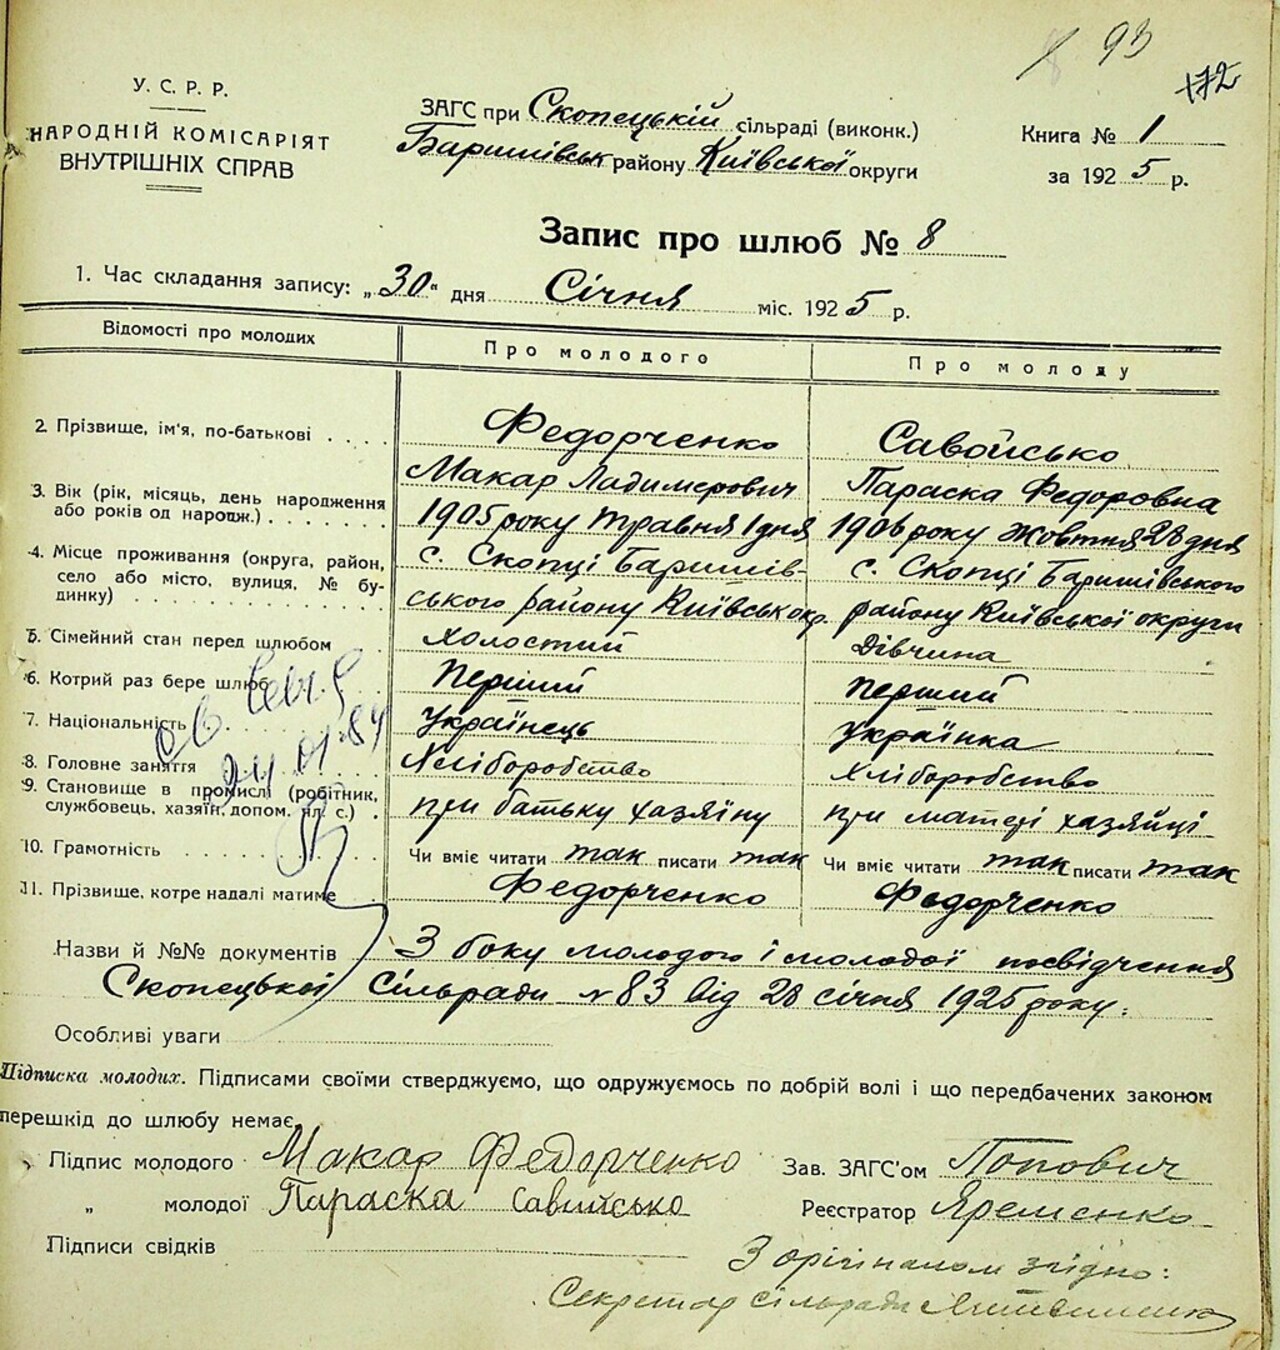 93
172
У. С. Р. Р.
НАРОДНІЙ КОМІСАРІЯТ
ВНУТРІШНІХ СПРАВ
ЗАГС при Скопецькій сільраді (виконк.)
Баришівськ району Київської округи
Книга № 1
за 1925 р.
Запис про шлюб № 8
1. Час складання запису: „30" дня Січня міс. 1925 р.
Відомості про молодих Про молодого Про молоду
2. Прізвище, ім'я, по-батькові . . . . Федорченко Савойсько
Макар Ладимерович Параска Федоровна
3. Вік (рік, місяць, день народження
або років од народж.) . . . . . . . 1905 року Травня 1 дня 1906 року Жовтня 28 дня
4. Місце проживання (округа, район,
село або місто, вулиця, № бу-
динку) . . . . . . . . . . . . . .
с. Скопці Баришів-
ського району Київськ окр.
с. Скопці Баришівського
району Київської округи
5. Сімейний стан перед шлюбом . Холостий Дівчина
6. Котрий раз бере шлюб . . . Перший Перший
7. Національність . . . Українець Українка
8. Головне заняття . . . Хліборобство Хліборобство
9. Становище в промислі (робітник,
службовець, хазяїн, допом. чл. с.) . при батьку хазяїну при матері хазяйці
24 01.84
10. Грамотність . . . . . . . . . Чи вміє читати так писати так Чи вміє читати так писати так
11. Прізвище, котре надалі матиме Федорченко Федорченко
Назви й №№ документів З боку молодого і молодої посвідчення
Скопецької Сільради № 83 від 28 січня 1925 року.
Особливі уваги
Підписка молодих. Підписами своїми стверджуємо, що одружуємось по добрій волі і що передбачених законом
перешкід до шлюбу немає.
Підпис молодого Макар Федорченко Зав. ЗАГС'ом Попович
„ молодої Параска Савийсько Реєстратор Яременко
Підписи свідків
З орігіналом згідно:
Секретар сільради